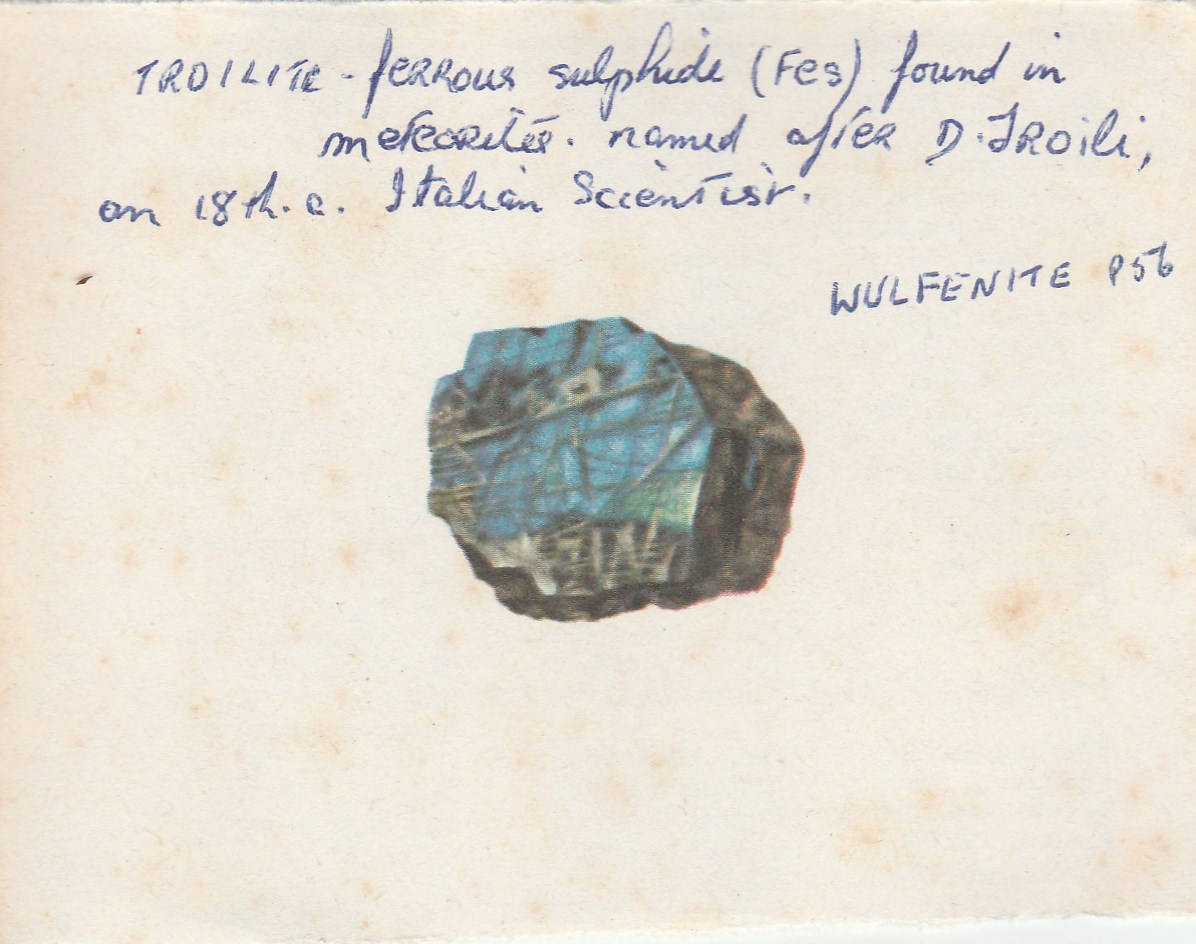 TROILITE - ferrous sulphide (FeS) found in
meteorites. named after D. Troili,
an 18th. c. Italian Scientist.
WULFENITE P56